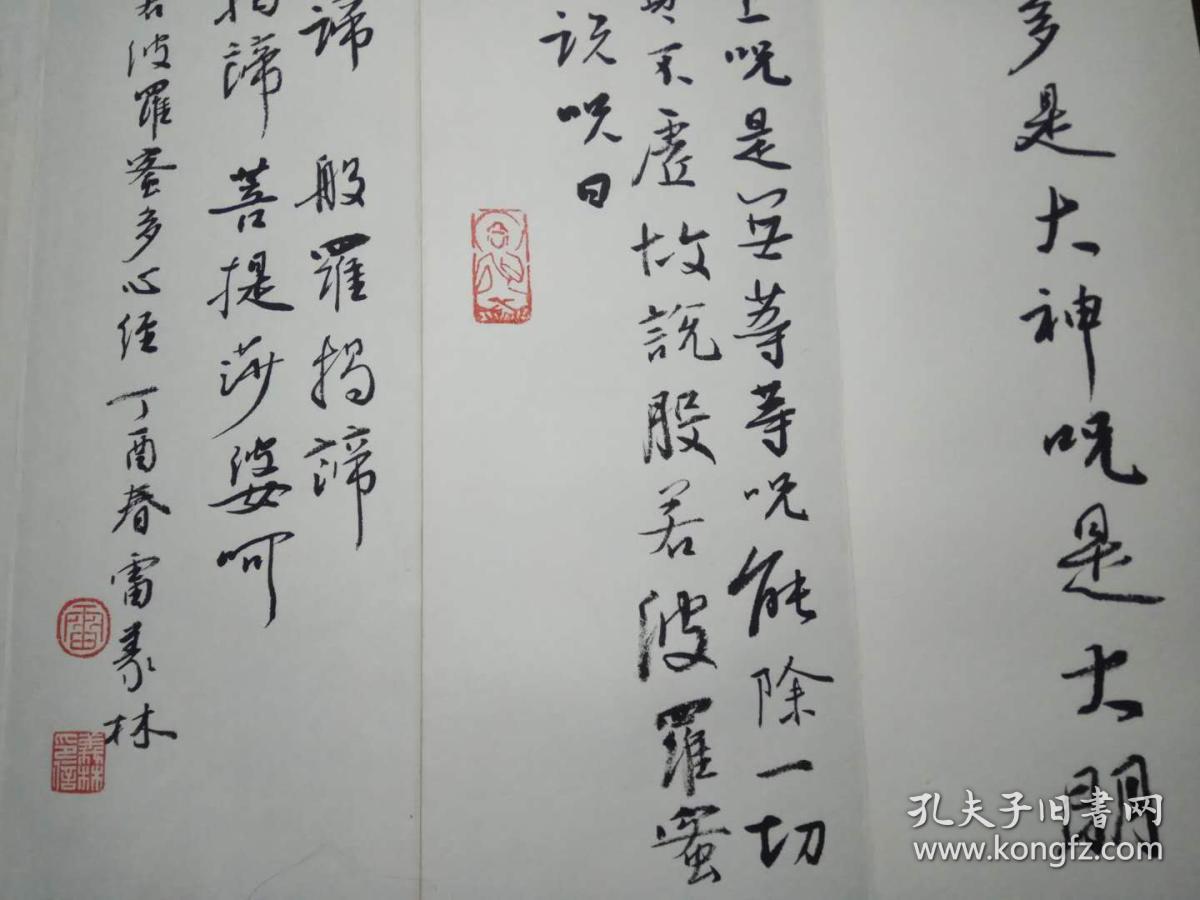 多是大神呪是大明
上呪是無等等呪能除一切
不虛故說般若波羅蜜
説呪曰
諦 般羅揭諦
揭諦 菩提莎婆呵
若波羅蜜多心经 丁酉春雷義林
雷
義林
孔夫子旧書网
www.kongfz.com